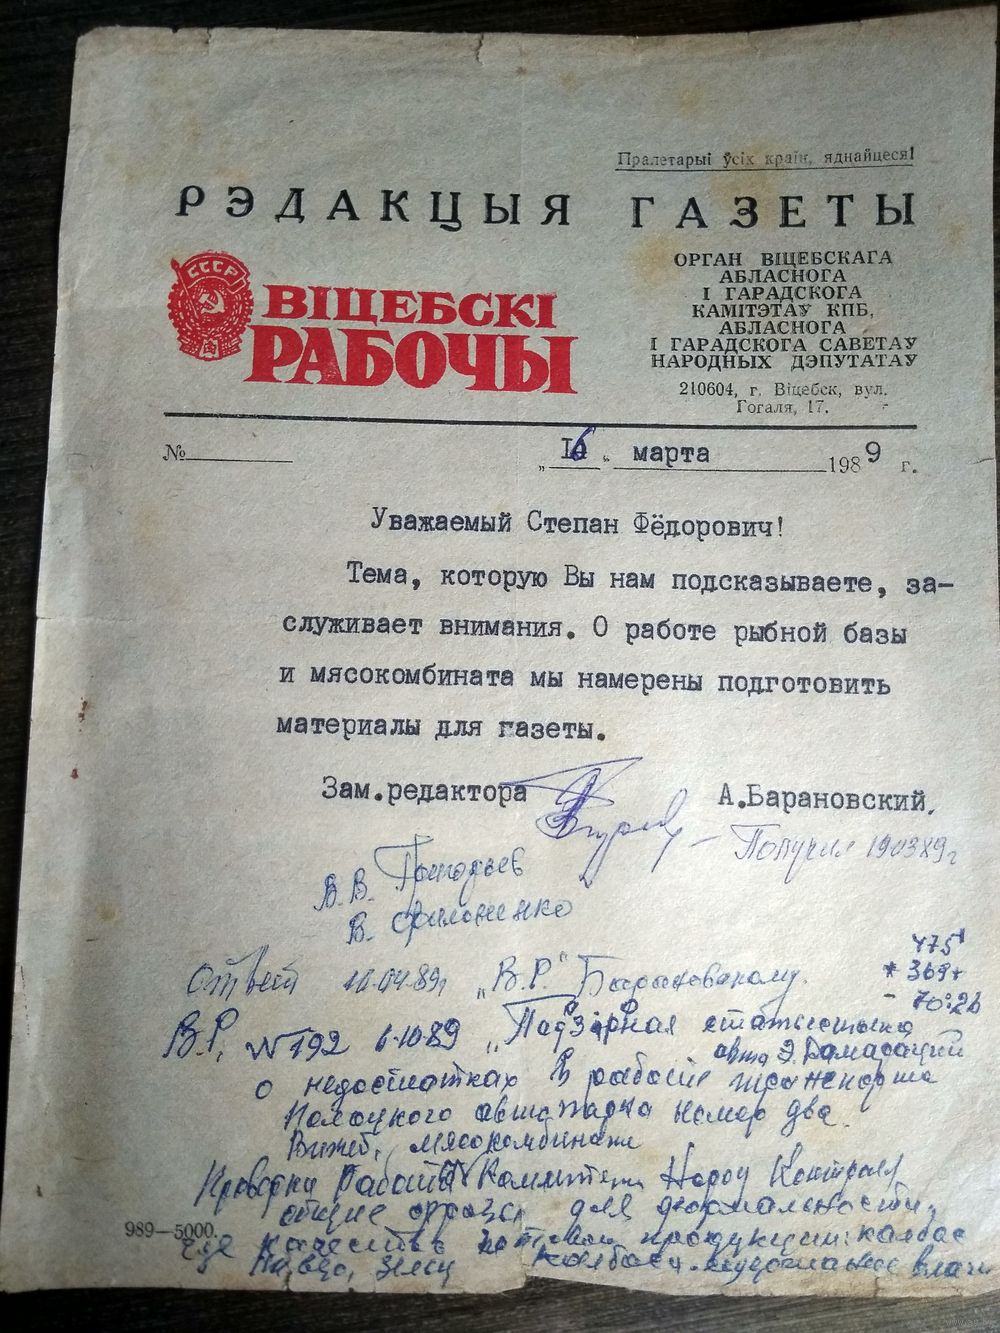 Пралетарыі ўсіх краін, яднайцеся!
РЭДАКЦЫЯ ГАЗЕТЫ
СССР
ВІЦЕБСКІ
РАБОЧЫ
ОРГАН ВІЦЕБСКАГА
АБЛАСНОГА
І ГАРАДСКОГА
КАМІТЭТАЎ КПБ,
АБЛАСНОГА
І ГАРАДСКОГА САВЕТАЎ
НАРОДНЫХ ДЭПУТАТАЎ
210604, г. Віцебск, вул.
Гогаля, 17.
№ „16“ марта 1989 г.
Уважаемый Степан Фёдорович!
Тема, которую Вы нам подсказываете, за-
служивает внимания. О работе рыбной базы
и мясокомбината мы намерены подготовить
материалы для газеты.
Зам.редактора А.Барановский.
– Получил 190389г
В.В.
В. Филоненко
475
369
70:26
Ответ 10.04.89г „В.Р." Барановскому.
В.Р. №192 6.10.89 „Падзорная статыстыка
авто Э.
о недостатках в работе транспорта
Полоцкого автопарка номер два.
мясокомбината
Проверки Работы Комитета Народ Контрол
общие фразы для формальности,
где качество готовой продукции: колбас
989—5000.